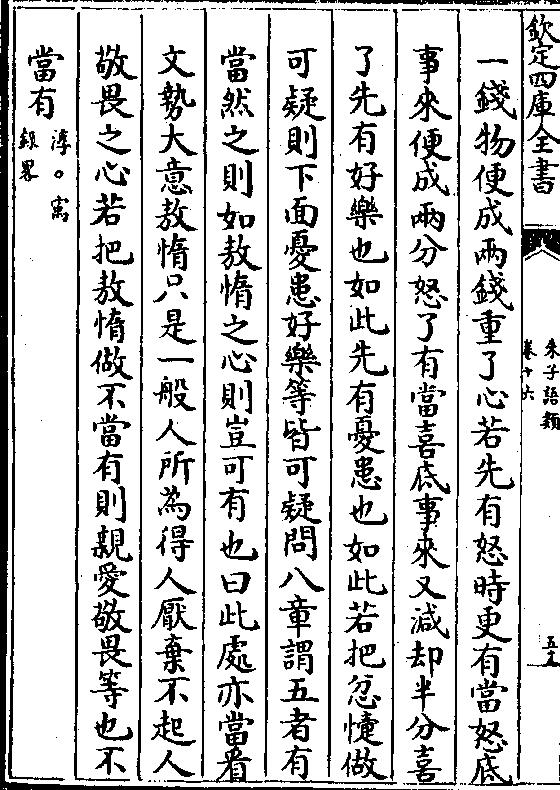 欽定四庫全書
朱子語類
卷十六
五九
一錢物便成兩錢重了心若先有怒時更有當怒底
事來便成兩分怒了有當喜底事來又減却半分喜
了先有好樂也如此先有憂患也如此若把忿懥做
可疑則下面憂患好樂等皆可疑問八章謂五者有
當然之則如敖惰之心則豈可有也曰此處亦當看
文勢大意敖惰只是一般人所為得人厭棄不起人
敬畏之心若把敖惰做不當有則親愛敬畏等也不
當有淳。寓
錄畧